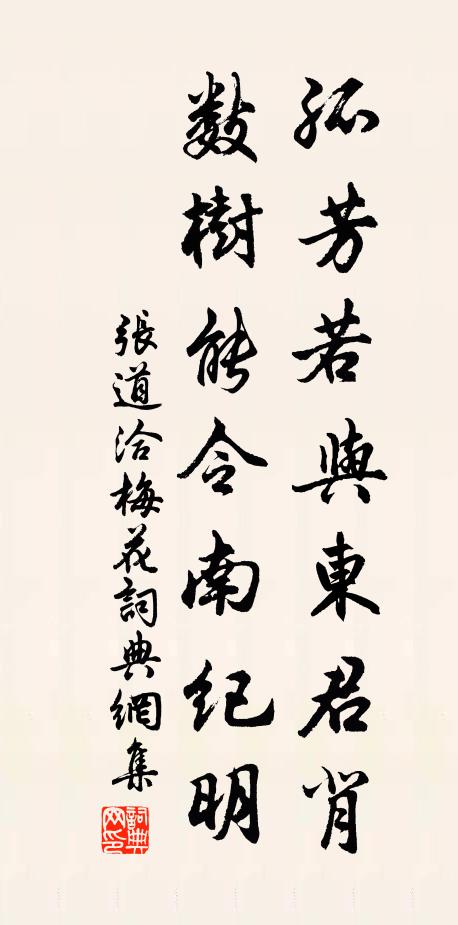 孤芳若與東君背
數樹能令南紀明
張道洽梅花詞典網集
詞典網印